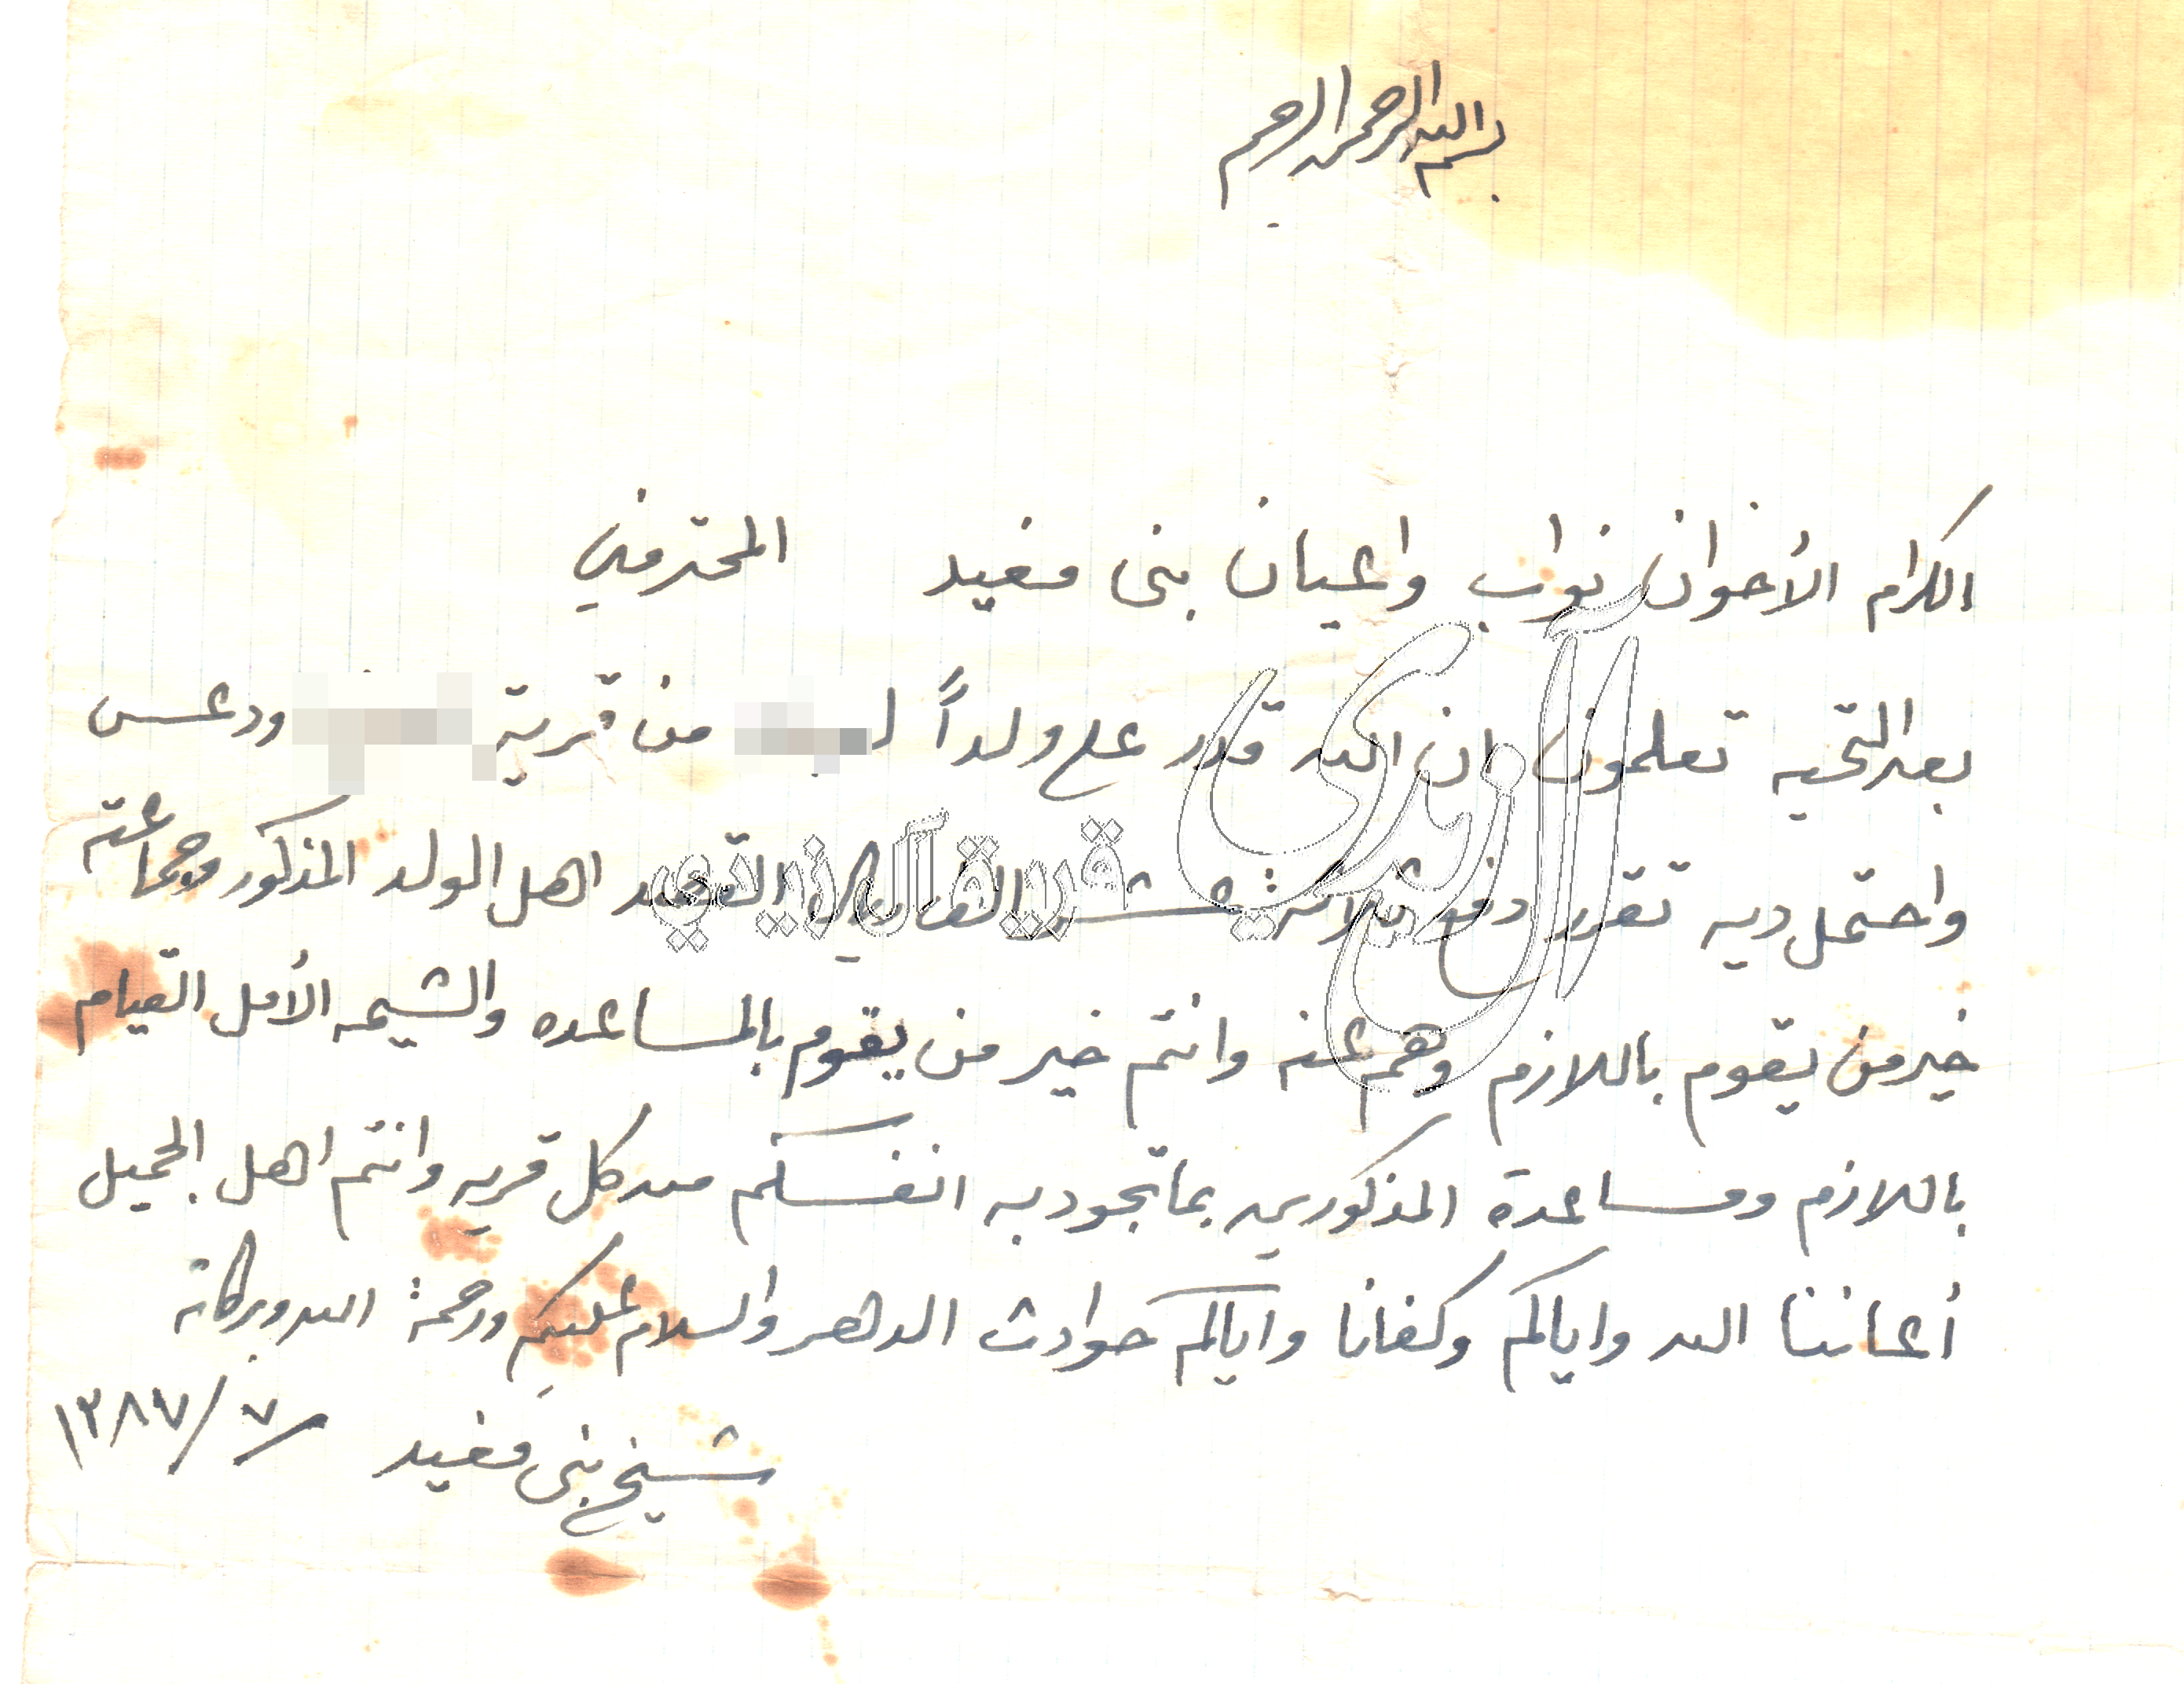 بسم الله الرحمن الرحيم
الكرام الأخوان نواب واعيان بنى مغيد المحترمين
بعد التحيه تعلمون ان الله قدر على ولداً لـ من قرية ودعس
واحتمل ديه تقرر دفع ثلاثة عشر الف ريال القصد اهل الولد المذكور وجماعته
خير من يقوم باللازم وهم عنه وانتم خير من يقوم بالمساعده والشيمه الأمل القيام
باللازم ومساعدة المذكورين بما تجود به انفسكم من كل قريه وانتم اهل الجميل
أعاننا الله واياكم وكفانا واياكم حوادث الدهر والسلام عليكم ورحمة الله وبركاته
شيخ بنى مغيد / ٧ / ١٣٨٧
آل زيدي
قرية آل زيدي